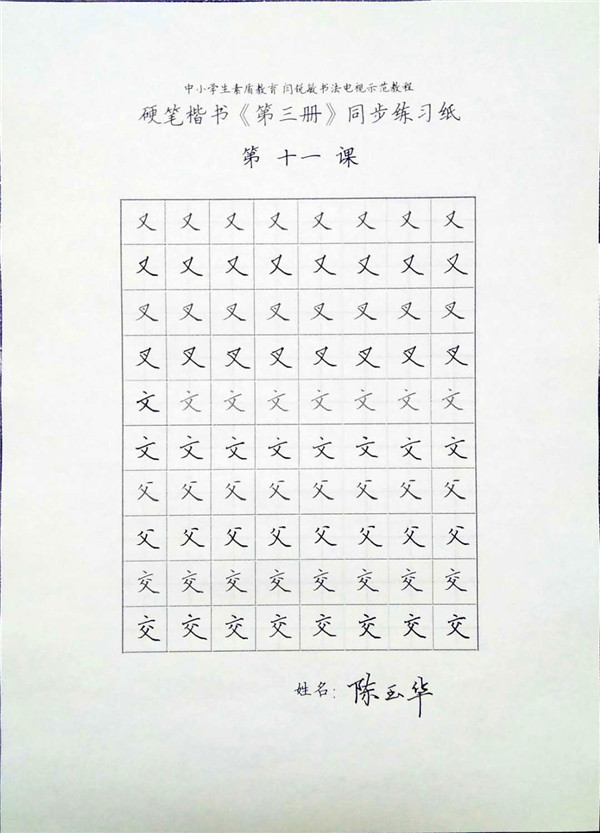 中小学生素质教育 闫锐敏书法电视示范教程
硬笔楷书《第三册》同步练习纸
第 十一 课
又 又 又 又 又 又 又 又
又 又 又 又 又 又 又 又
叉 叉 叉 叉 叉 叉 叉 叉
叉 叉 叉 叉 叉 叉 叉 叉
文 文 文 文 文 文 文 文
文 文 文 文 文 文 文 文
父 父 父 父 父 父 父 父
父 父 父 父 父 父 父 父
交 交 交 交 交 交 交 交
交 交 交 交 交 交 交 交
姓名: 陈玉华